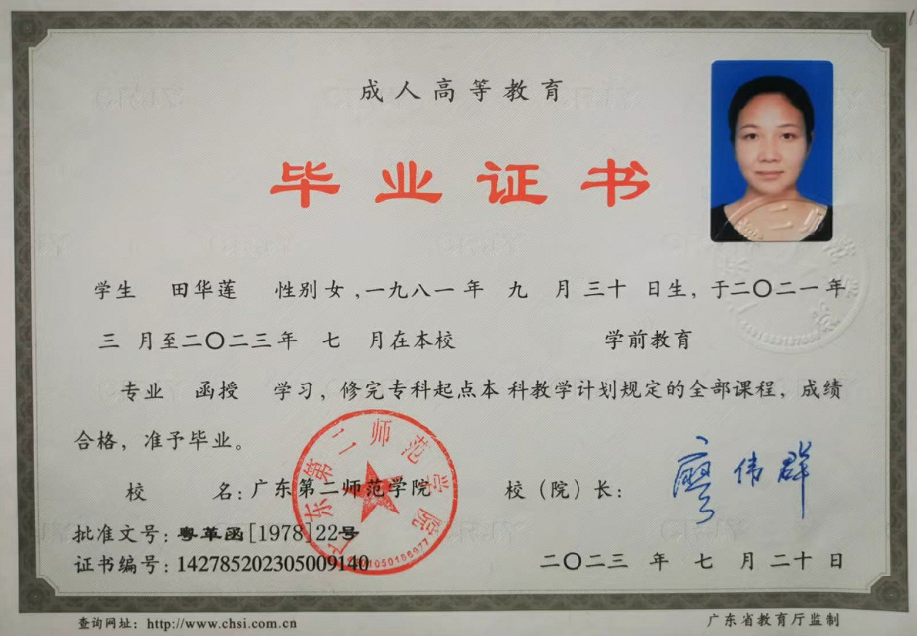 成人高等教育
毕业证书
学生 田华莲 性别 女，一九八一年 九 月 三十 日生，于二〇二一年
三 月至二〇二三年 七 月在本校 学前教育
专业 函授 学习，修完专科起点本科教学计划规定的全部课程，成绩
合格，准予毕业。
校 名：广东第二师范学院 校（院）长：廖伟群
批准文号：粤革函[1978]22号
证书编号：142785202305009140
二〇二三 年 七 月 二十 日
查询网址：http://www.chsi.com.cn 广东省教育厅监制
广东第二师范学院